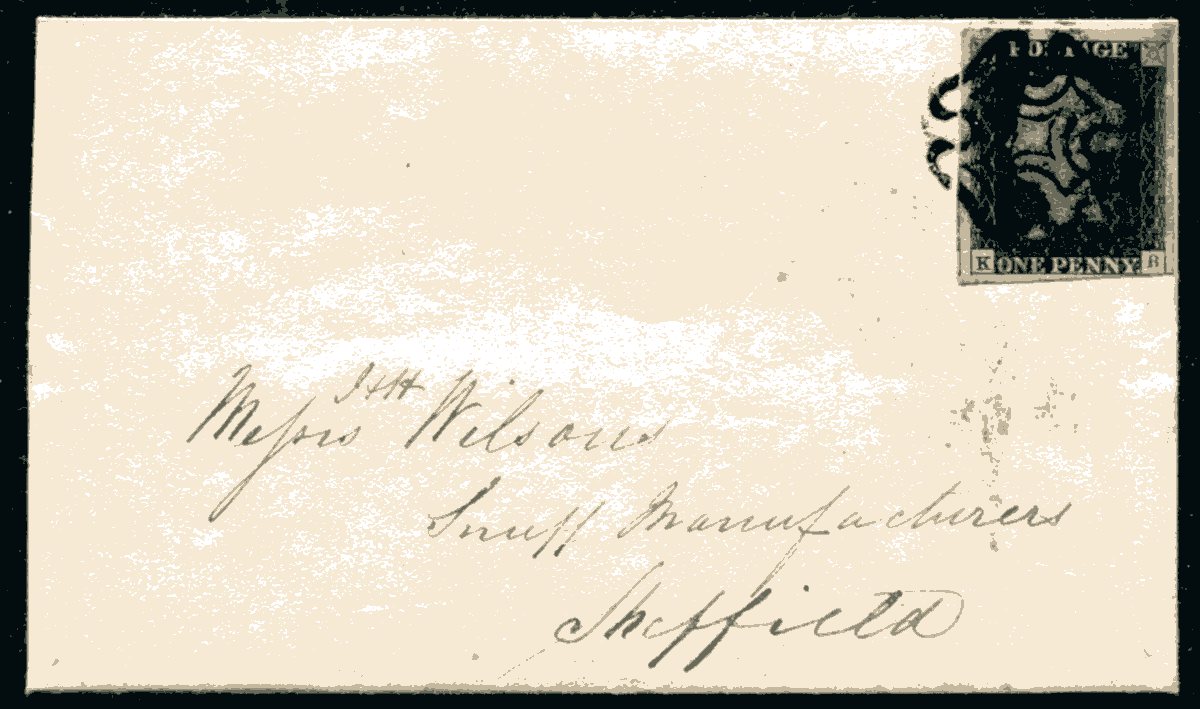 POSTAGE
K ONE PENNY B
Messrs J & H Wilsons
Snuff Manufacturers
Sheffield